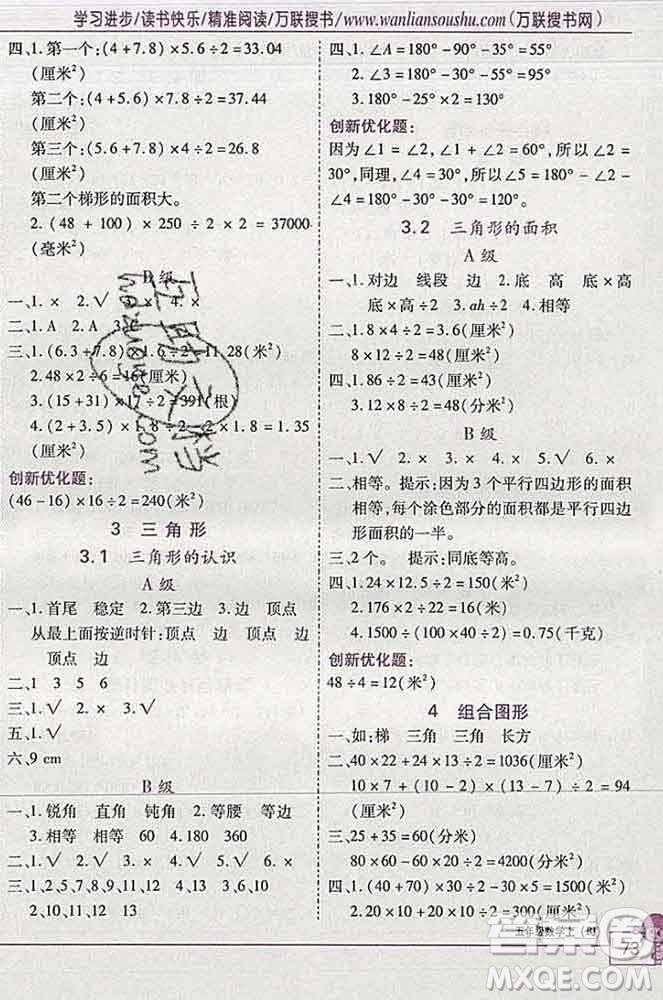 学习进步/读书快乐/精准阅读/万联搜书/www.wanliansoushu.com(万联搜书网)
四、1.第一个:(4+5.6)×7.8÷2=33.04
(厘米²)
第二个:(4+5.6)×7.8÷2=37.44
(厘米²)
第三个:(5.6+7.8)×4÷2=26.8
(厘米²)
第二个梯形的面积大。
2.(48+100)×250÷2×2=37000
(毫米²)
B级
一、1.× 2.√ 3.× 4.×
二、1.A 2.A 3.
三、1.(6.3+7.8)×1.6÷2=11.28(米²)
2.48×2÷6=16(厘米)
3.(15+31)×17÷2=391(根)
4.(2+3.5)×1.8÷2×2=1.35
(平方米)
创新优化题:
(46-16)×16÷2=240(米²)
3 三角形
3.1 三角形的认识
A级
一、1.首尾 稳定 2.第三边 3.边 顶点
从最上面按逆时针:顶点 边 顶点 边
顶点 边
二、1 3 5 6
三、1.√ 2.× 3.√
五、1.√
六、9 cm
B级
一、1.锐角 直角 钝角 2.等腰 等边
3.相等 相等 60 4.180 360
二、1.√ 2.√ 3.× 4.√ 5.√ 6.×
三、1.2、5、7、8、9、11 3、4、6、10
2.10、11 12 13
四、1.∠A=180°-90°-35°=55°
2.∠A=180°-30°-55°=95°
3.180°-25°×2=130°
创新优化题:
因为∠1=∠2,∠1+∠2=60°,所以∠2=
30°,同理,∠4=30°,所以∠5=180°-∠2-
∠4=180°-30°-30°=120°。
3.2 三角形的面积
A级
一、1.对边 线段 边 2.底 高 底×高
底×高÷2 3.ah÷2 4.相等
二、1.8×4÷2=12(厘米²)
8×12÷2=48(厘米²)
四、1.86÷2=43(厘米²)
3.12×8÷2=48(分米²)
B级
一、1.√ 2.× 3.× 4.√ 5.√ 6.×
二、相等。提示:因为3个平行四边形的面积
相等,每个涂色部分的面积都是平行四
边形面积的一半。
三、2个。 提示:同底等高。
四、1.24×12.5÷2=150(米²)
2.176×2÷22=16(米)
4.1500÷(1500×4÷3)=0.75(千克)
创新优化题:
48÷4=12(米²)
4 组合图形
一、如:梯 三角 三角 长方
二、40×22+24×13÷2=1036(厘米²)
10×7+(10+2)×(13-7)÷2=94
(厘米²)
三、25+35=60(分米)
80×60-20×60÷2=4200(分米²)
四、1.(40+70)×30÷2-30×30÷2=
2.20×10+20×10÷2=300(米²)
五年级数学上(BJ)
73
答案圈
MXQE.COM